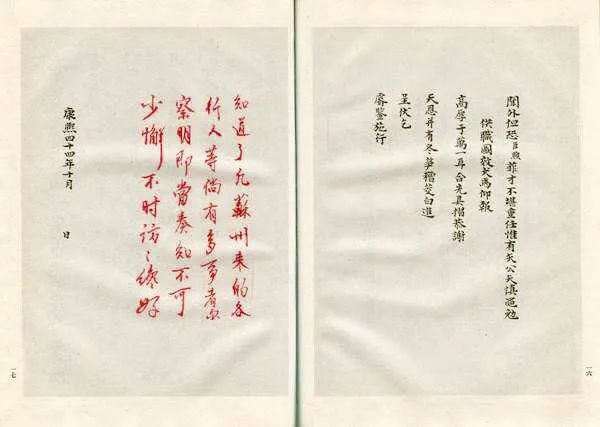 閫外但恐臣煦菲才不堪重任惟有矢公矢慎黽勉
供職圖效犬馬仰報
高厚于萬一耳合先具摺恭謝
天恩并有冬笋糟茭白進
呈伏乞
睿鑒施行
一六
知道了凡蘇州来的各
行人等倘有多事者尔
察明即當奏知不可
少懈不时訪〻纔好
康熙四十四年十月　日
一七